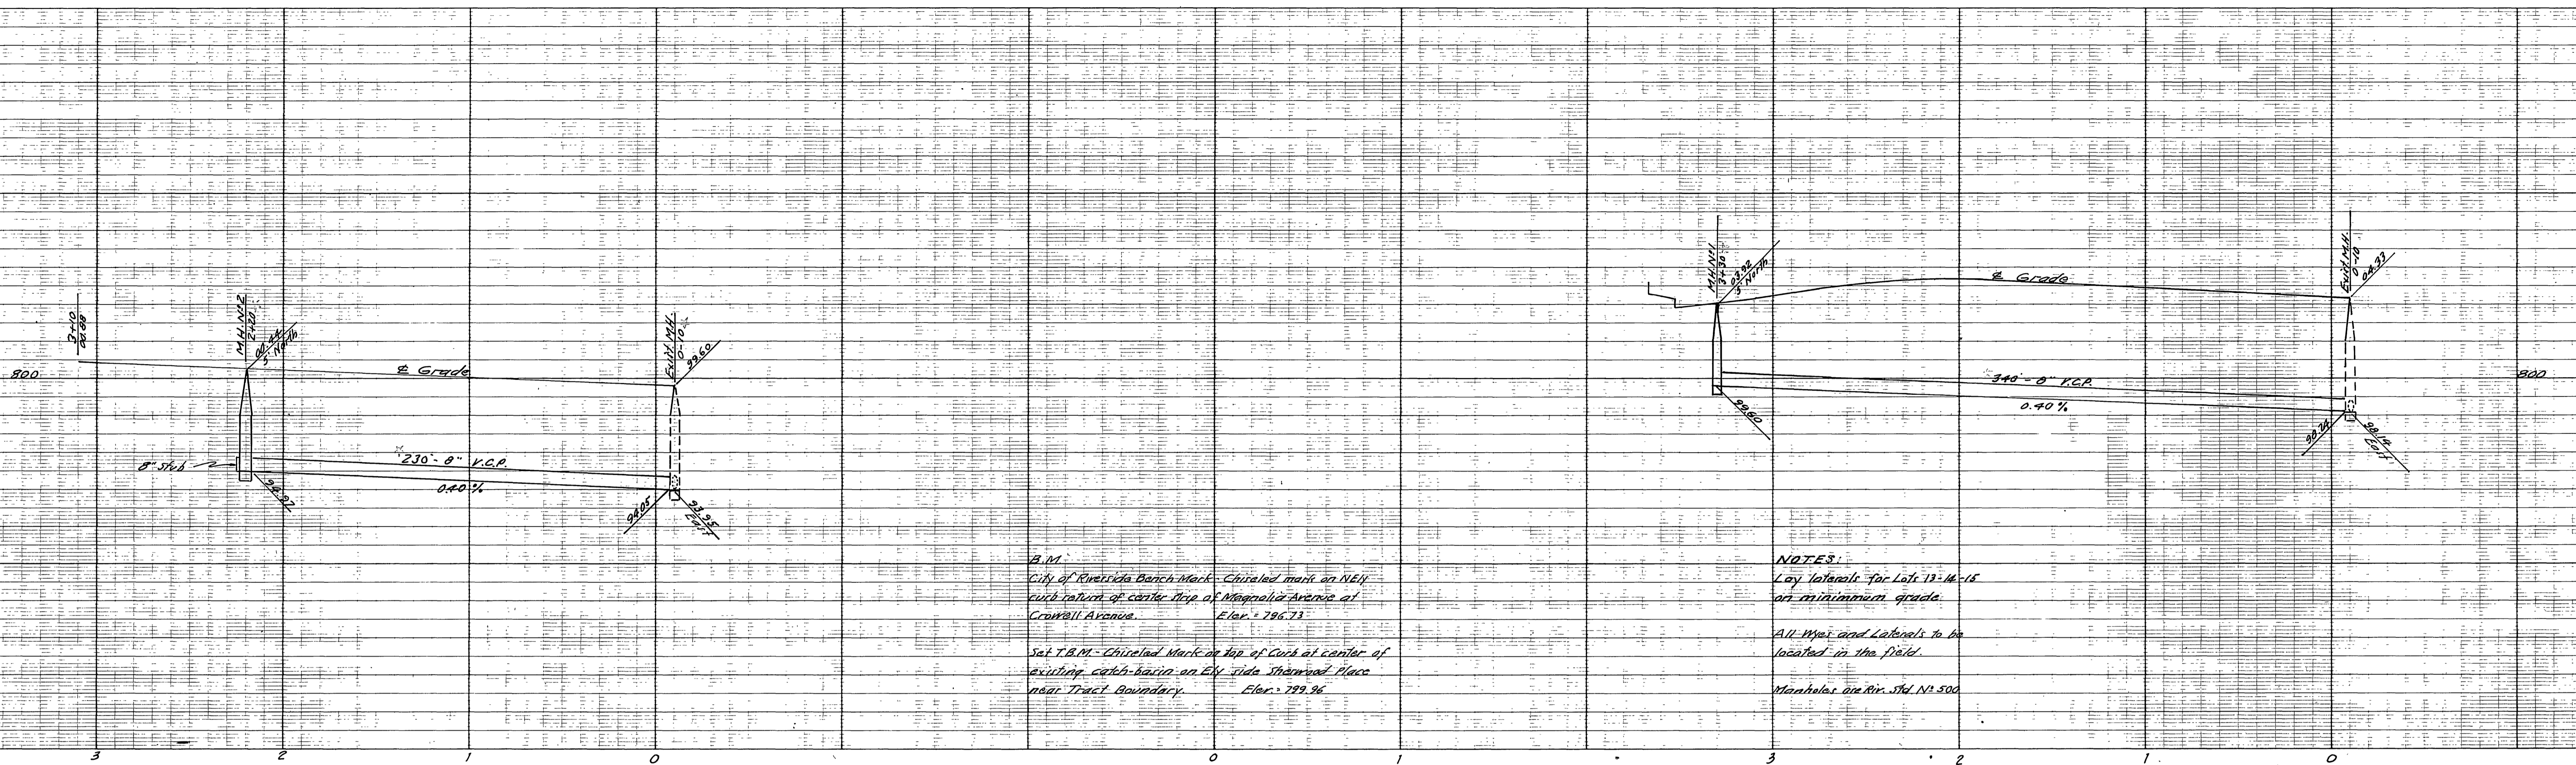 3+10
00.88
M.H. Nº 2
2+20
00.44
5' North
Exist. M.H.
0-10
99.60
800
℄ Grade
8" Stub
230' - 8" V.C.P.
0.40 %
94.97
94.05
93.95
East
M.H. Nº 1
3+30
03.92
5' North
Exist. M.H.
0-10
04.33
℄ Grade
340' - 8" V.C.P.
0.40 %
800
99.60
98.24
98.14
East
B.M.
City of Riverside Bench Mark - Chiseled mark on NEly
curb return of center strip of Magnolia Avenue at
Crowell Avenue. Elev. = 796.73
Set T.B.M. - Chiseled Mark on top of Curb at center of
existing catch-basin on Ely side Sherwood Place
near Tract Boundary. Elev. = 799.96
NOTES:
Lay laterals for Lots 13-14-15
on minimmum grade
All Wyes and Laterals to be
located in the field.
Manholes are Riv. Std. Nº 500
3 2 1 0 0 1 3 2 1 0